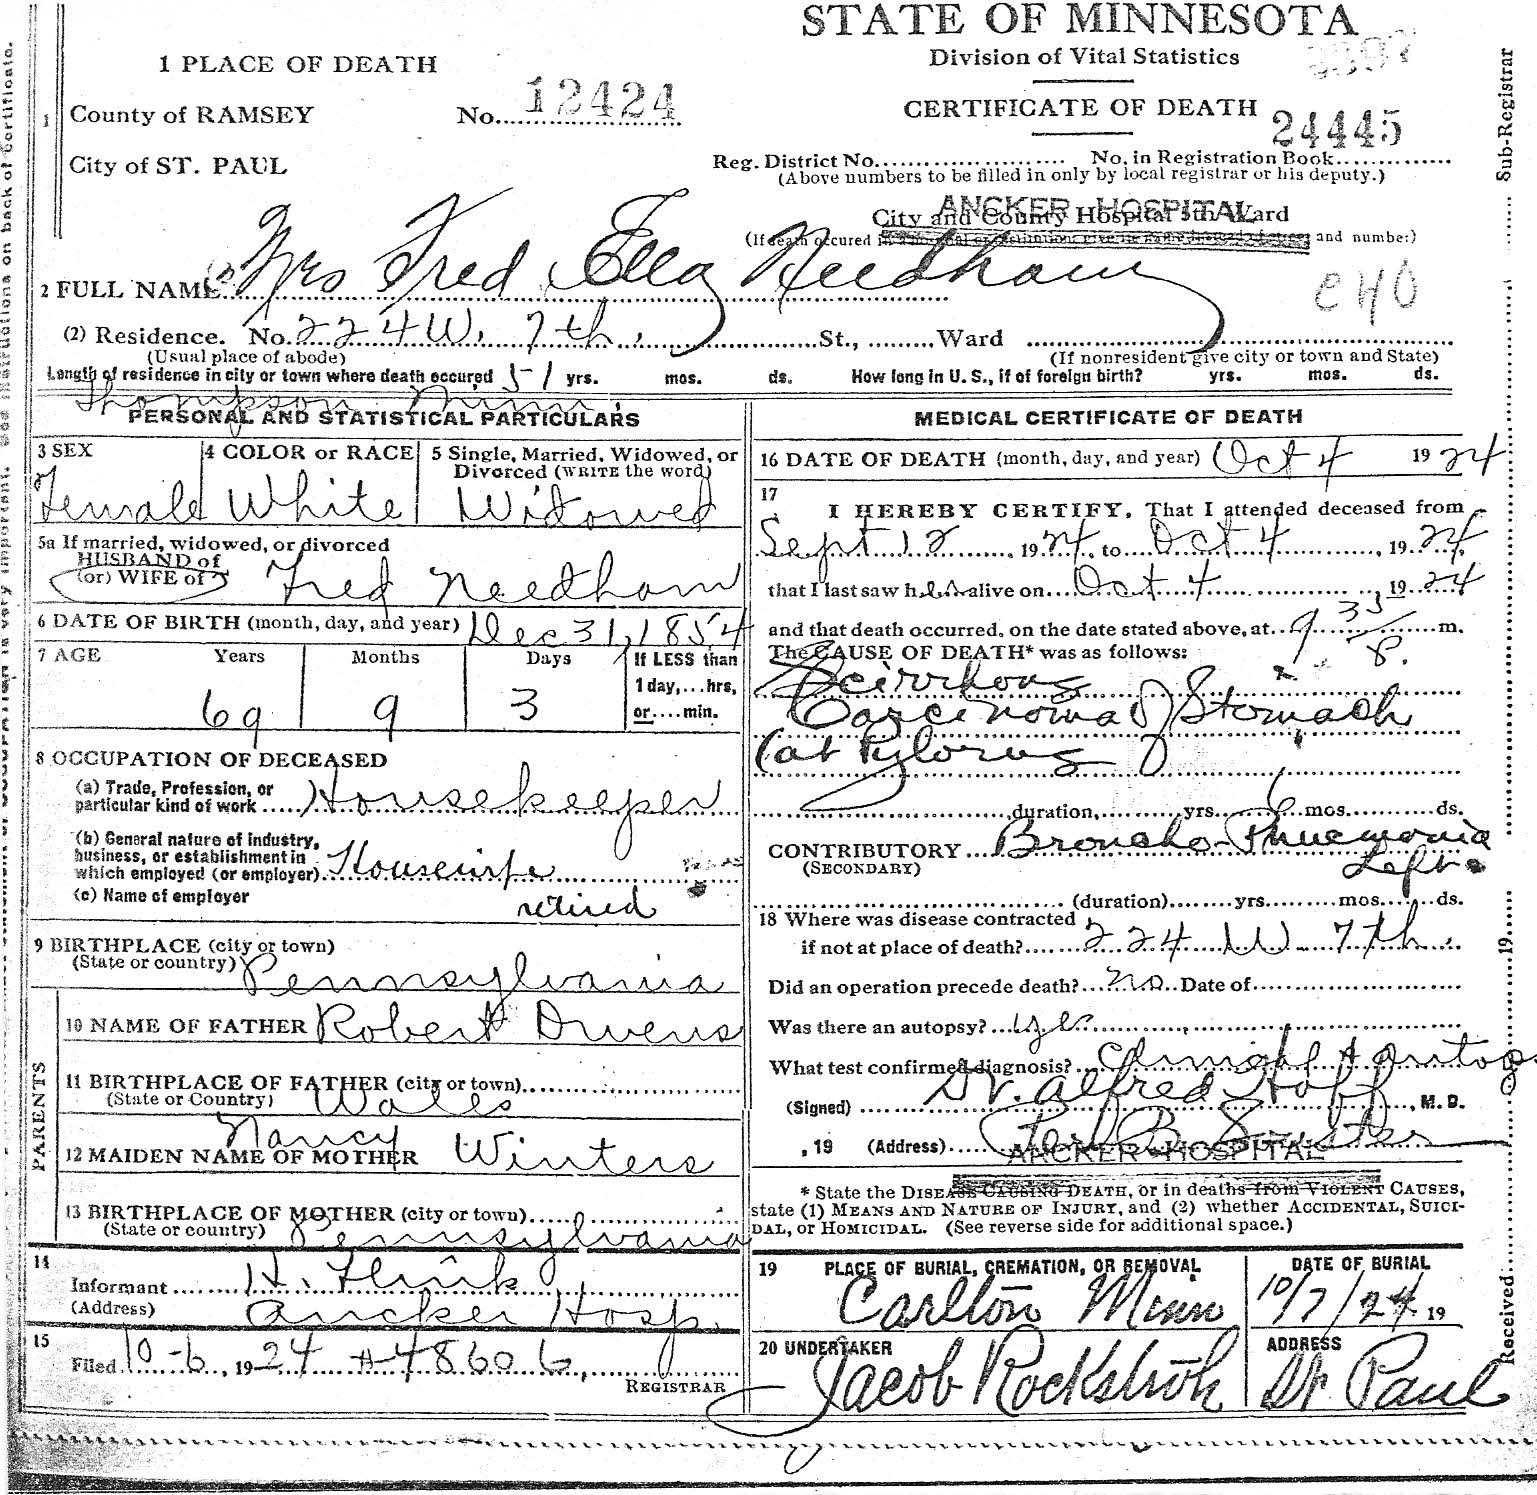 STATE OF MINNESOTA
Division of Vital Statistics
CERTIFICATE OF DEATH
24445
1 PLACE OF DEATH
County of RAMSEY No. 12424
City of ST. PAUL
Reg. District No. No. in Registration Book
(Above numbers to be filled in only by local registrar or his deputy.)
ANCKER HOSPITAL
City and County Hospital 5th Ward
(If death occured in a hospital or institution, give its name instead of street and number)
2 FULL NAME Mrs Fred Ella Needham
C40
(2) Residence. No. 224 W. 7th. St., Ward
(Usual place of abode) (If nonresident give city or town and State)
Length of residence in city or town where death occured 51 yrs. mos. ds. How long in U. S., if of foreign birth? yrs. mos. ds.
Thompson Minn.
PERSONAL AND STATISTICAL PARTICULARS
3 SEX 4 COLOR or RACE 5 Single, Married, Widowed, or Divorced (WRITE the word)
Female White Widowed
5a If married, widowed, or divorced
HUSBAND of
(or) WIFE of Fred Needham
6 DATE OF BIRTH (month, day, and year) Dec 31, 1854
7 AGE Years Months Days If LESS than
1 day,...hrs,
or....min.
69 9 3
8 OCCUPATION OF DECEASED
(a) Trade, Profession, or
particular kind of work Housekeeper
(b) General nature of industry,
business, or establishment in
which employed (or employer) Housewife
(c) Name of employer retired
9 BIRTHPLACE (city or town)
(State or country) Pennsylvania
PARENTS
10 NAME OF FATHER Robert Owens
11 BIRTHPLACE OF FATHER (city or town)
(State or Country) Wales
12 MAIDEN NAME OF MOTHER Nancy Winters
13 BIRTHPLACE OF MOTHER (city or town)
(State or country) Pennsylvania
14
Informant H. Flink
(Address) Ancker Hosp.
15
Filed 10-6, 1924 #48606
REGISTRAR
MEDICAL CERTIFICATE OF DEATH
16 DATE OF DEATH (month, day, and year) Oct 4 1924
17
I HEREBY CERTIFY, That I attended deceased from
Sept 12, 1924, to Oct 4, 1924,
that I last saw her alive on Oct 4, 1924
and that death occurred, on the date stated above, at 9 35/P. m.
The CAUSE OF DEATH* was as follows:
Scirrhous
Carcinoma of Stomach
(at Pylorus
duration, yrs. 6 mos. ds.
CONTRIBUTORY Broncho-Pnuemonia
(SECONDARY) Left.
(duration) yrs. mos. ds.
18 Where was disease contracted
if not at place of death? 224 W 7th.
Did an operation precede death? no Date of
Was there an autopsy? yes
What test confirmed diagnosis? Clinical & autopsy
(Signed) Dr. Alfred Hoff, M. D.
, 19 (Address)
ANCKER HOSPITAL
* State the DISEASE CAUSING DEATH, or in deaths from VIOLENT CAUSES,
state (1) MEANS AND NATURE OF INJURY, and (2) whether ACCIDENTAL, SUICI-
DAL, or HOMICIDAL. (See reverse side for additional space.)
19 PLACE OF BURIAL, CREMATION, OR REMOVAL DATE OF BURIAL
Carlton Minn 10/7/24 19
20 UNDERTAKER ADDRESS
Jacob Rockstroh St Paul
Sub-Registrar
19
Received